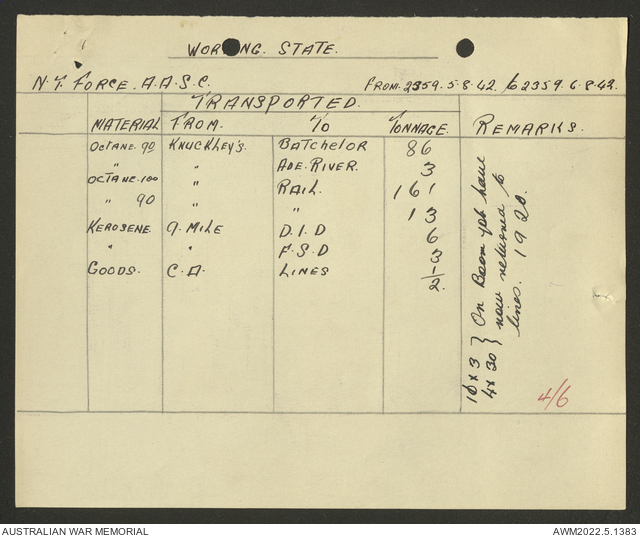 WORKING. STATE.
N.T. FORCE. A.A.S.C. FROM. 2359. 5.8.42. to 2359. 6.8.42.
TRANSPORTED.
MATERIAL FROM. TO TONNAGE. REMARKS.
OCTANE. 90 KNUCKLEY'S BATCHELOR 86
" " ADE. RIVER. 3
OCTANE. 100 " RAIL. 161
" 90 " " 13
KEROSENE. 9. MILE D.I.D 6
" " F.S.D 3
GOODS. C.A. LINES 1/2.
10 x 3 } On Boom job have
4 x 30 } now returned to
lines. 1920.
4/6
AUSTRALIAN WAR MEMORIAL AWM2022.5.1383